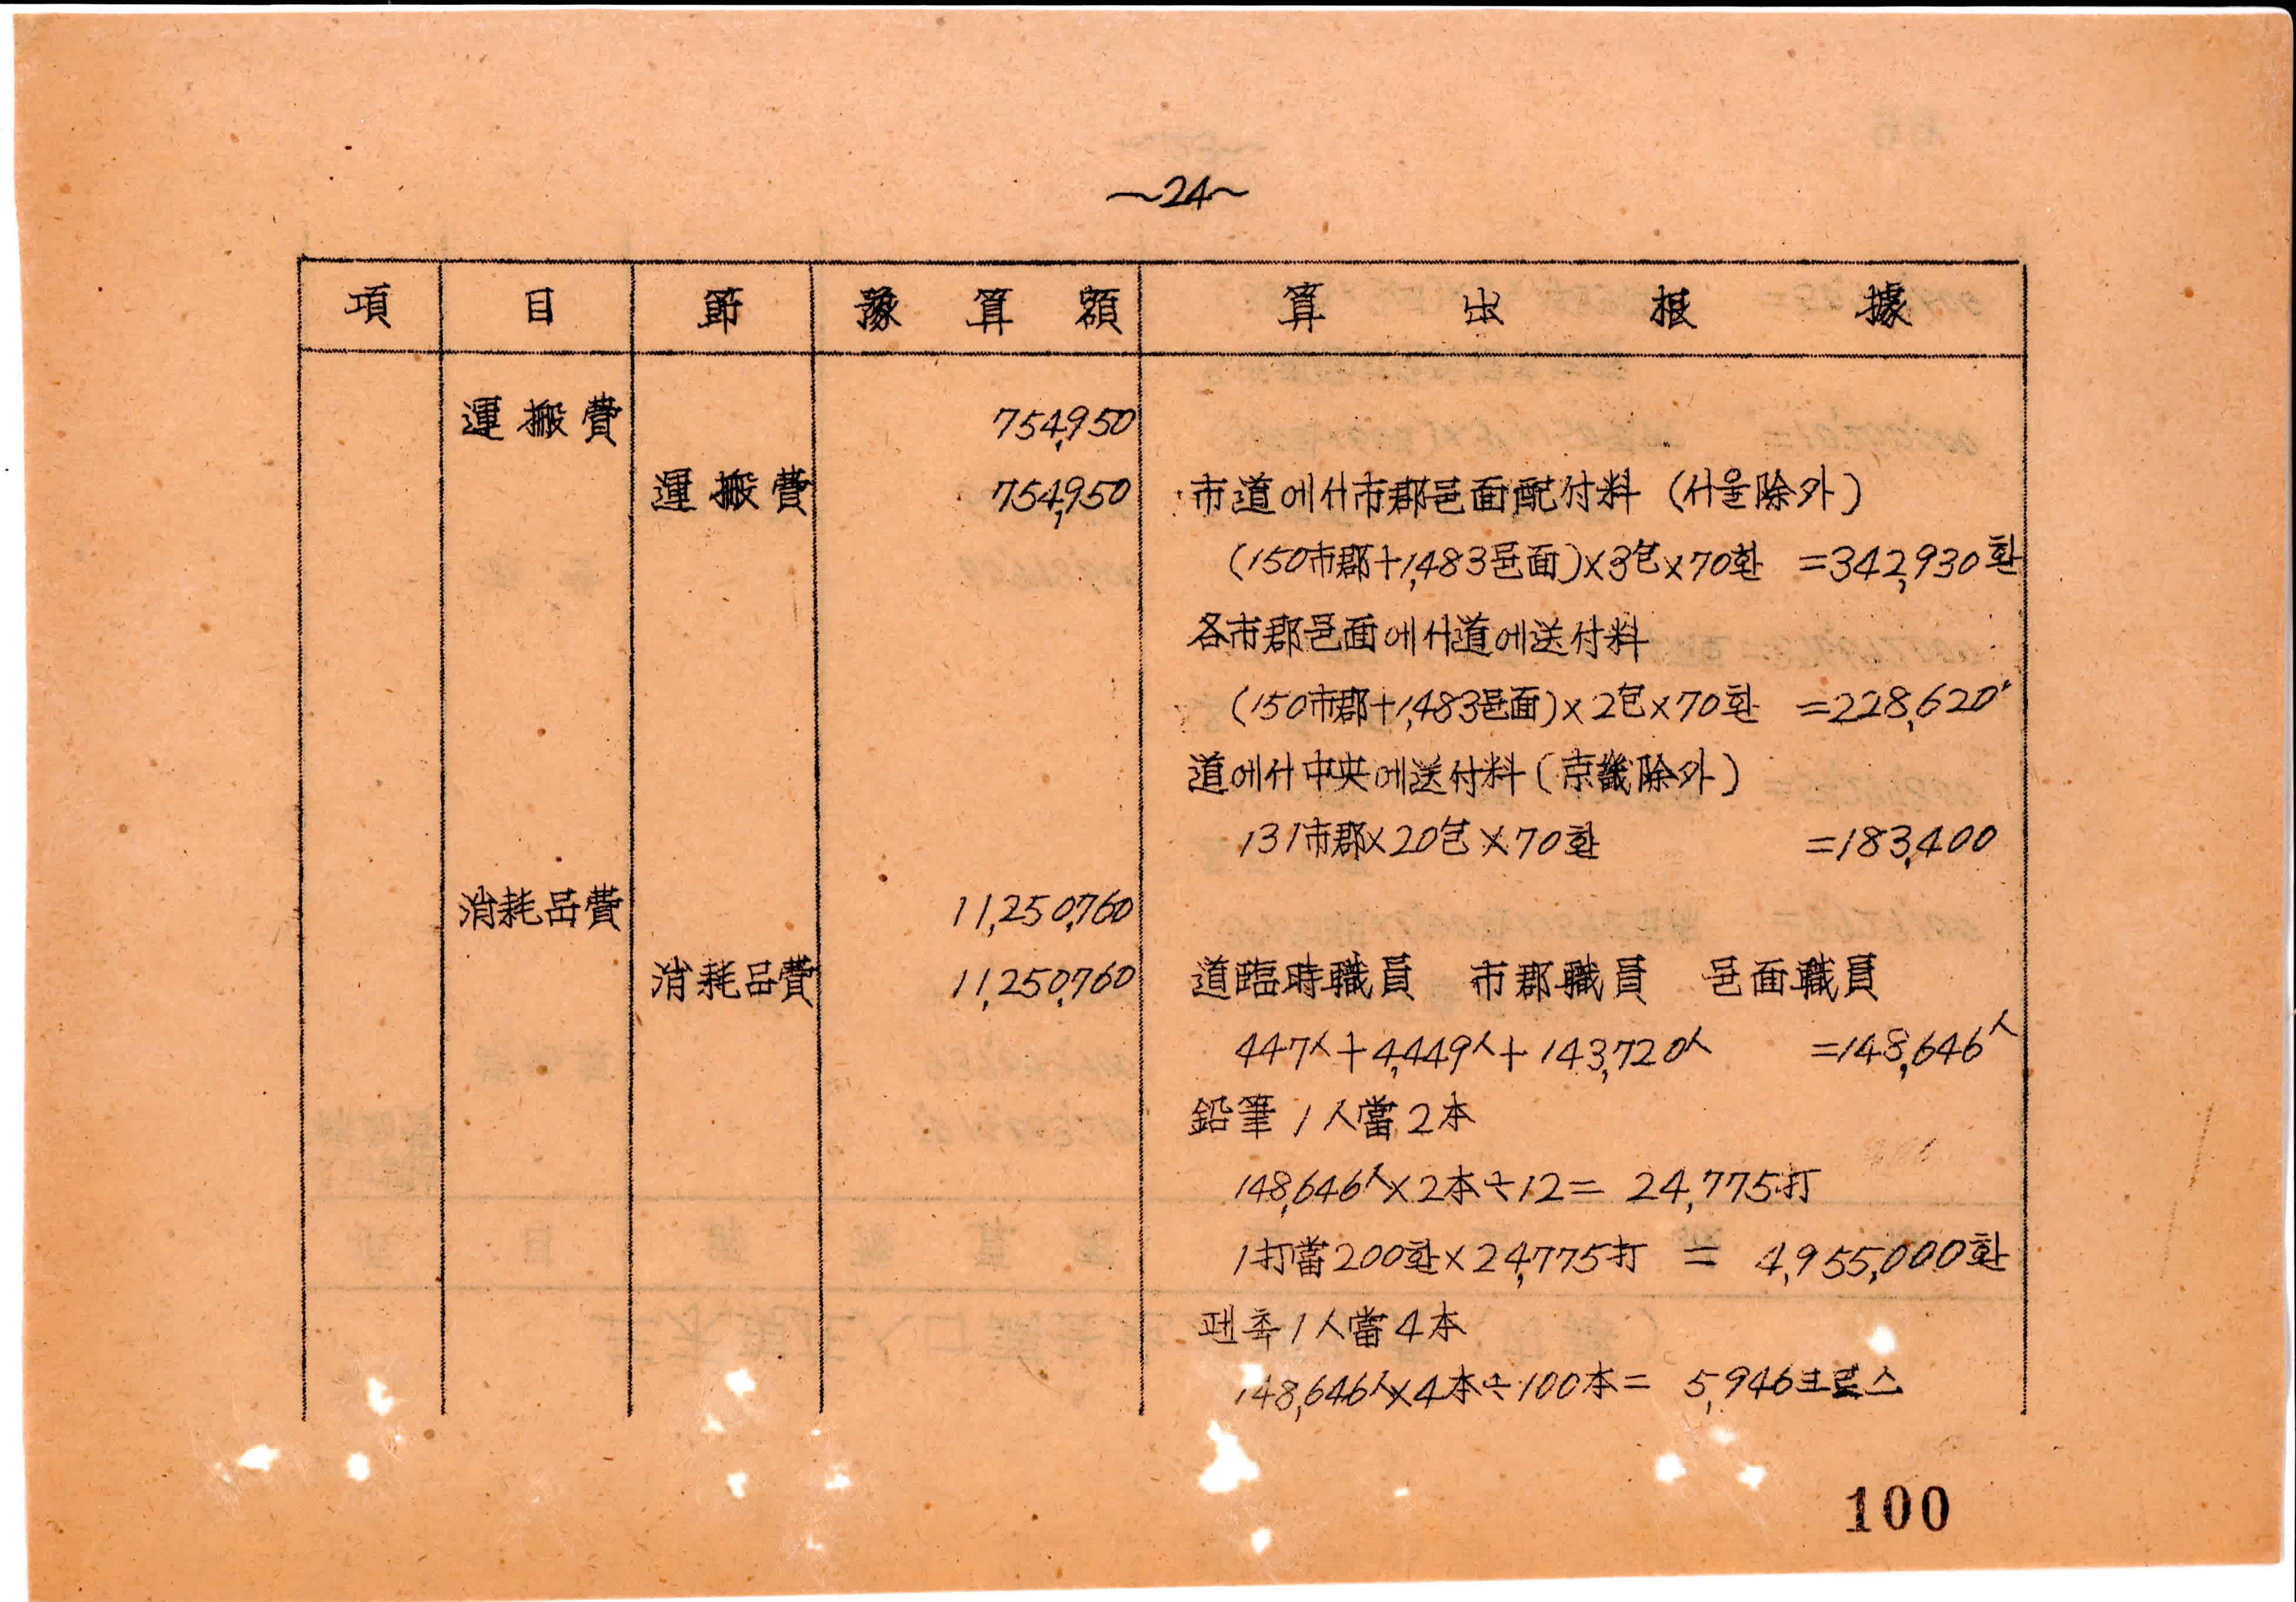 ~24~
項 目 節 豫算額 算出根據
運搬費 754,950
運搬費 754,950 市道에서市郡邑面配付料 (서울除外)
(150市郡+1,483邑面)×3包×70환 =342,930환
各市郡邑面에서道에送付料
(150市郡+1,483邑面)×2包×70환 =228,620〃
道에서中央에送付料(京畿除外)
131市郡×20包×70환 =183,400
消耗品費 11,250,760
消耗品費 11,250,760 道臨時職員 市郡職員 邑面職員
447人+4,449人+143,720人 =148,646人
鉛筆1人當2本
148,646人×2本÷12= 24,775打
1打當200환×24,775打 = 4,955,000환
펜촉1人當4本
148,646人×4本÷100本= 5,946크로스
100